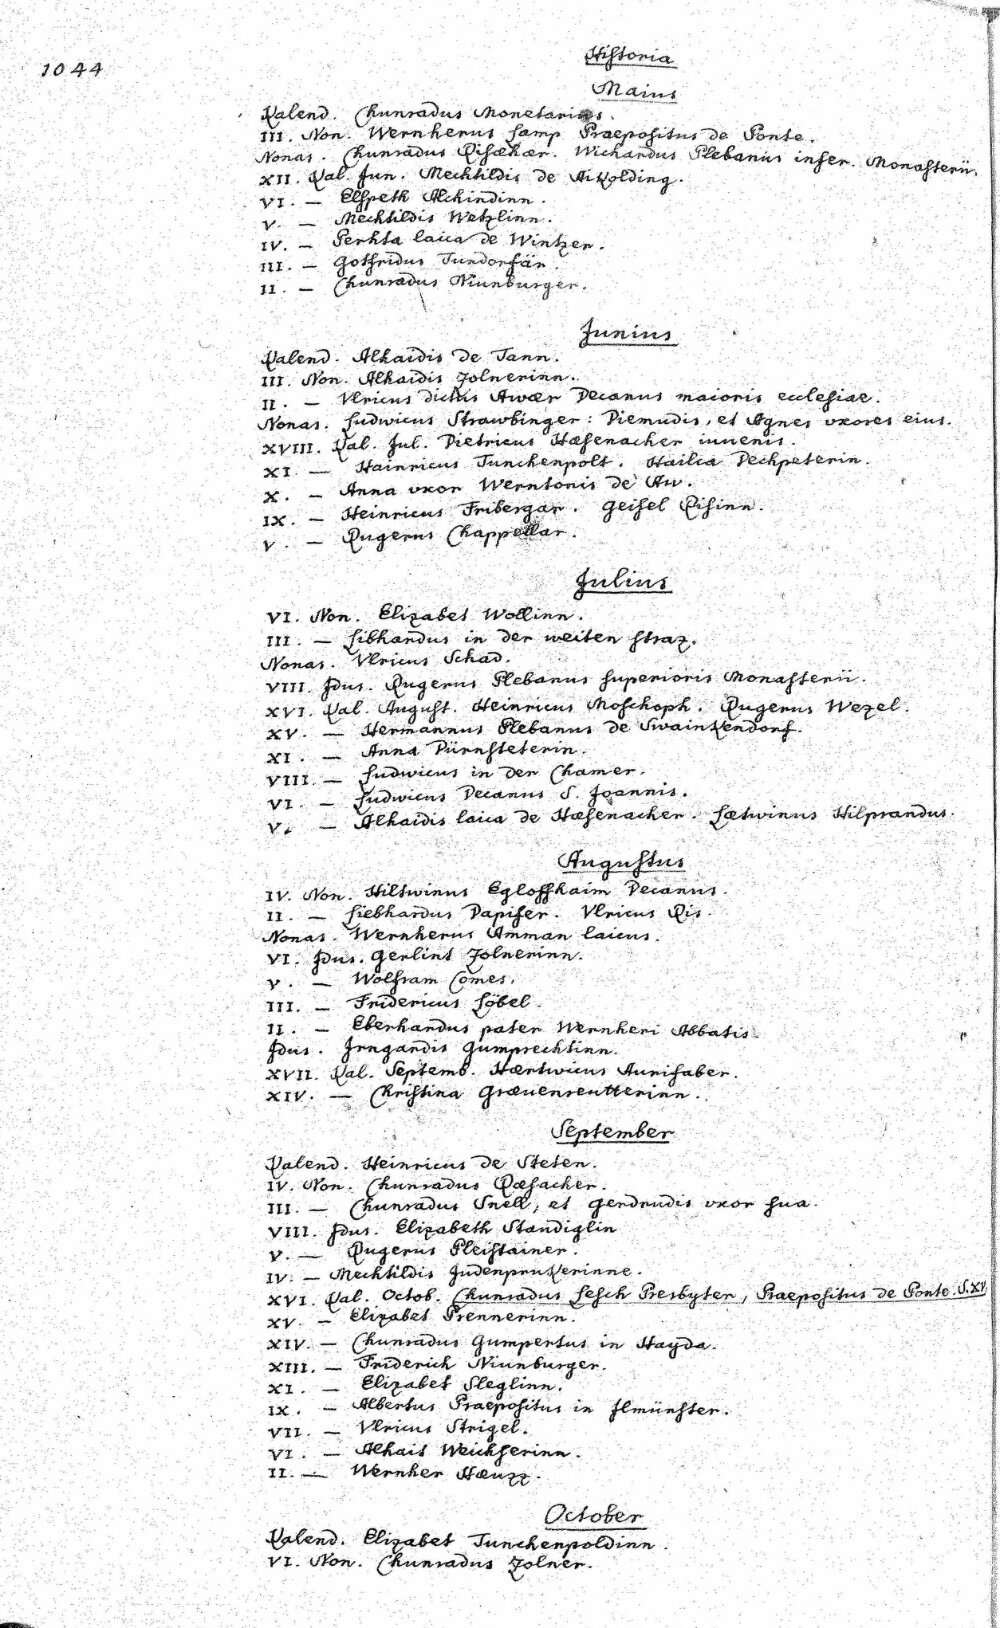 1044
Historia
Maius
Kalend. Chunradus Monetarius.
III. Non. Wernherus Lamp Praepositus de Ponte.
Nonas. Chunradus Risækær. Wichardus Plebanus infer. Monasterii.
XII. Kal. Jun. Mechtildis de Aikolding.
VI. — Elspeth Alchindinn.
V. — Mechtildis Wetzlinn.
IV. — Perhta laica de Wintzer.
III. — Gotfridus Tundorfär.
II. — Chunradus Niunburger.
Junius
Kalend. Alhaidis de Tann.
III. Non. Alhaidis Zolnerinn.
II. — Vlricus dictus Awær Decanus maioris ecclesiae.
Nonas. Ludwicus Strawbinger: Diemudis, et Agnes vxores eius.
XVIII. Kal. Jul. Dietricus Hæsenacher iuvenis.
XI. — Hainricus Tunchenpolt. Hailca Dechpeterin.
X. — Anna vxor Werntonis de Aw.
IX. — Heinricus Fribergar. Geisel Risinn.
V. — Rugerus Chappellar.
Julius
VI. Non. Elizabet Wollinn.
III. — Libhardus in der weiten straz.
Nonas. Vlricus Schad.
VIII. Idus. Rugerus Plebanus superioris Monasterii.
XVI. Kal. August. Heinricus Moschoph. Rugerus Wezel.
XV. — Hermannus Plebanus de Swainkendorf.
XI. — Anna Dürnsteterin.
VIII. — Ludwicus in der Chamer.
VI. — Ludwicus Decanus S. Joannis.
V. — Alhaidis laica de Hæsenacher. Lætwinus Hilprandus.
Augustus
IV. Non. Hiltwinus Egloffhaim Decanus.
II. — Liebhardus Dapifer. Vlricus Ris.
Nonas. Wernherus Amman laicus.
VI. Idus. Gerlint Zolnerinn.
V. — Wolfram Comes.
III. — Fridericus Löbel.
II. — Eberhardus pater Wernheri Abbatis
Idus. Irngardis Gumprechtinn.
XVII. Kal. Septemb. Hærtwicus Aurifaber.
XIV. — Christina Grævenreutterinn.
September
Kalend. Heinricus de Steten.
IV. Non. Chunradus Ræsacher.
III. — Chunradus Snell, et Gerdrudis vxor sua.
VIII. Idus. Elizabeth Standiglin
V. — Rugerus Pleistainer.
IV. — Mechtildis Judenprukerinne.
XVI. Kal. Octob. Chunradus Lesch Presbyter, Praepositus de Ponte. S.XV
XV. — Elizabet Prennerinn.
XIV. — Chunradus Gumpertus in Hayda.
XIII. — Friderich Niunburger.
XI. — Elizabet Sleglinn.
IX. — Albertus Praepositus in Ilmünster.
VII. — Vlricus Strigel.
VI. — Alhait Weichserinn.
II. — Wernher Hæuzz.
October
Kalend. Elizabet Tunchenpoldinn.
VI. Non. Chunradus Zolner.